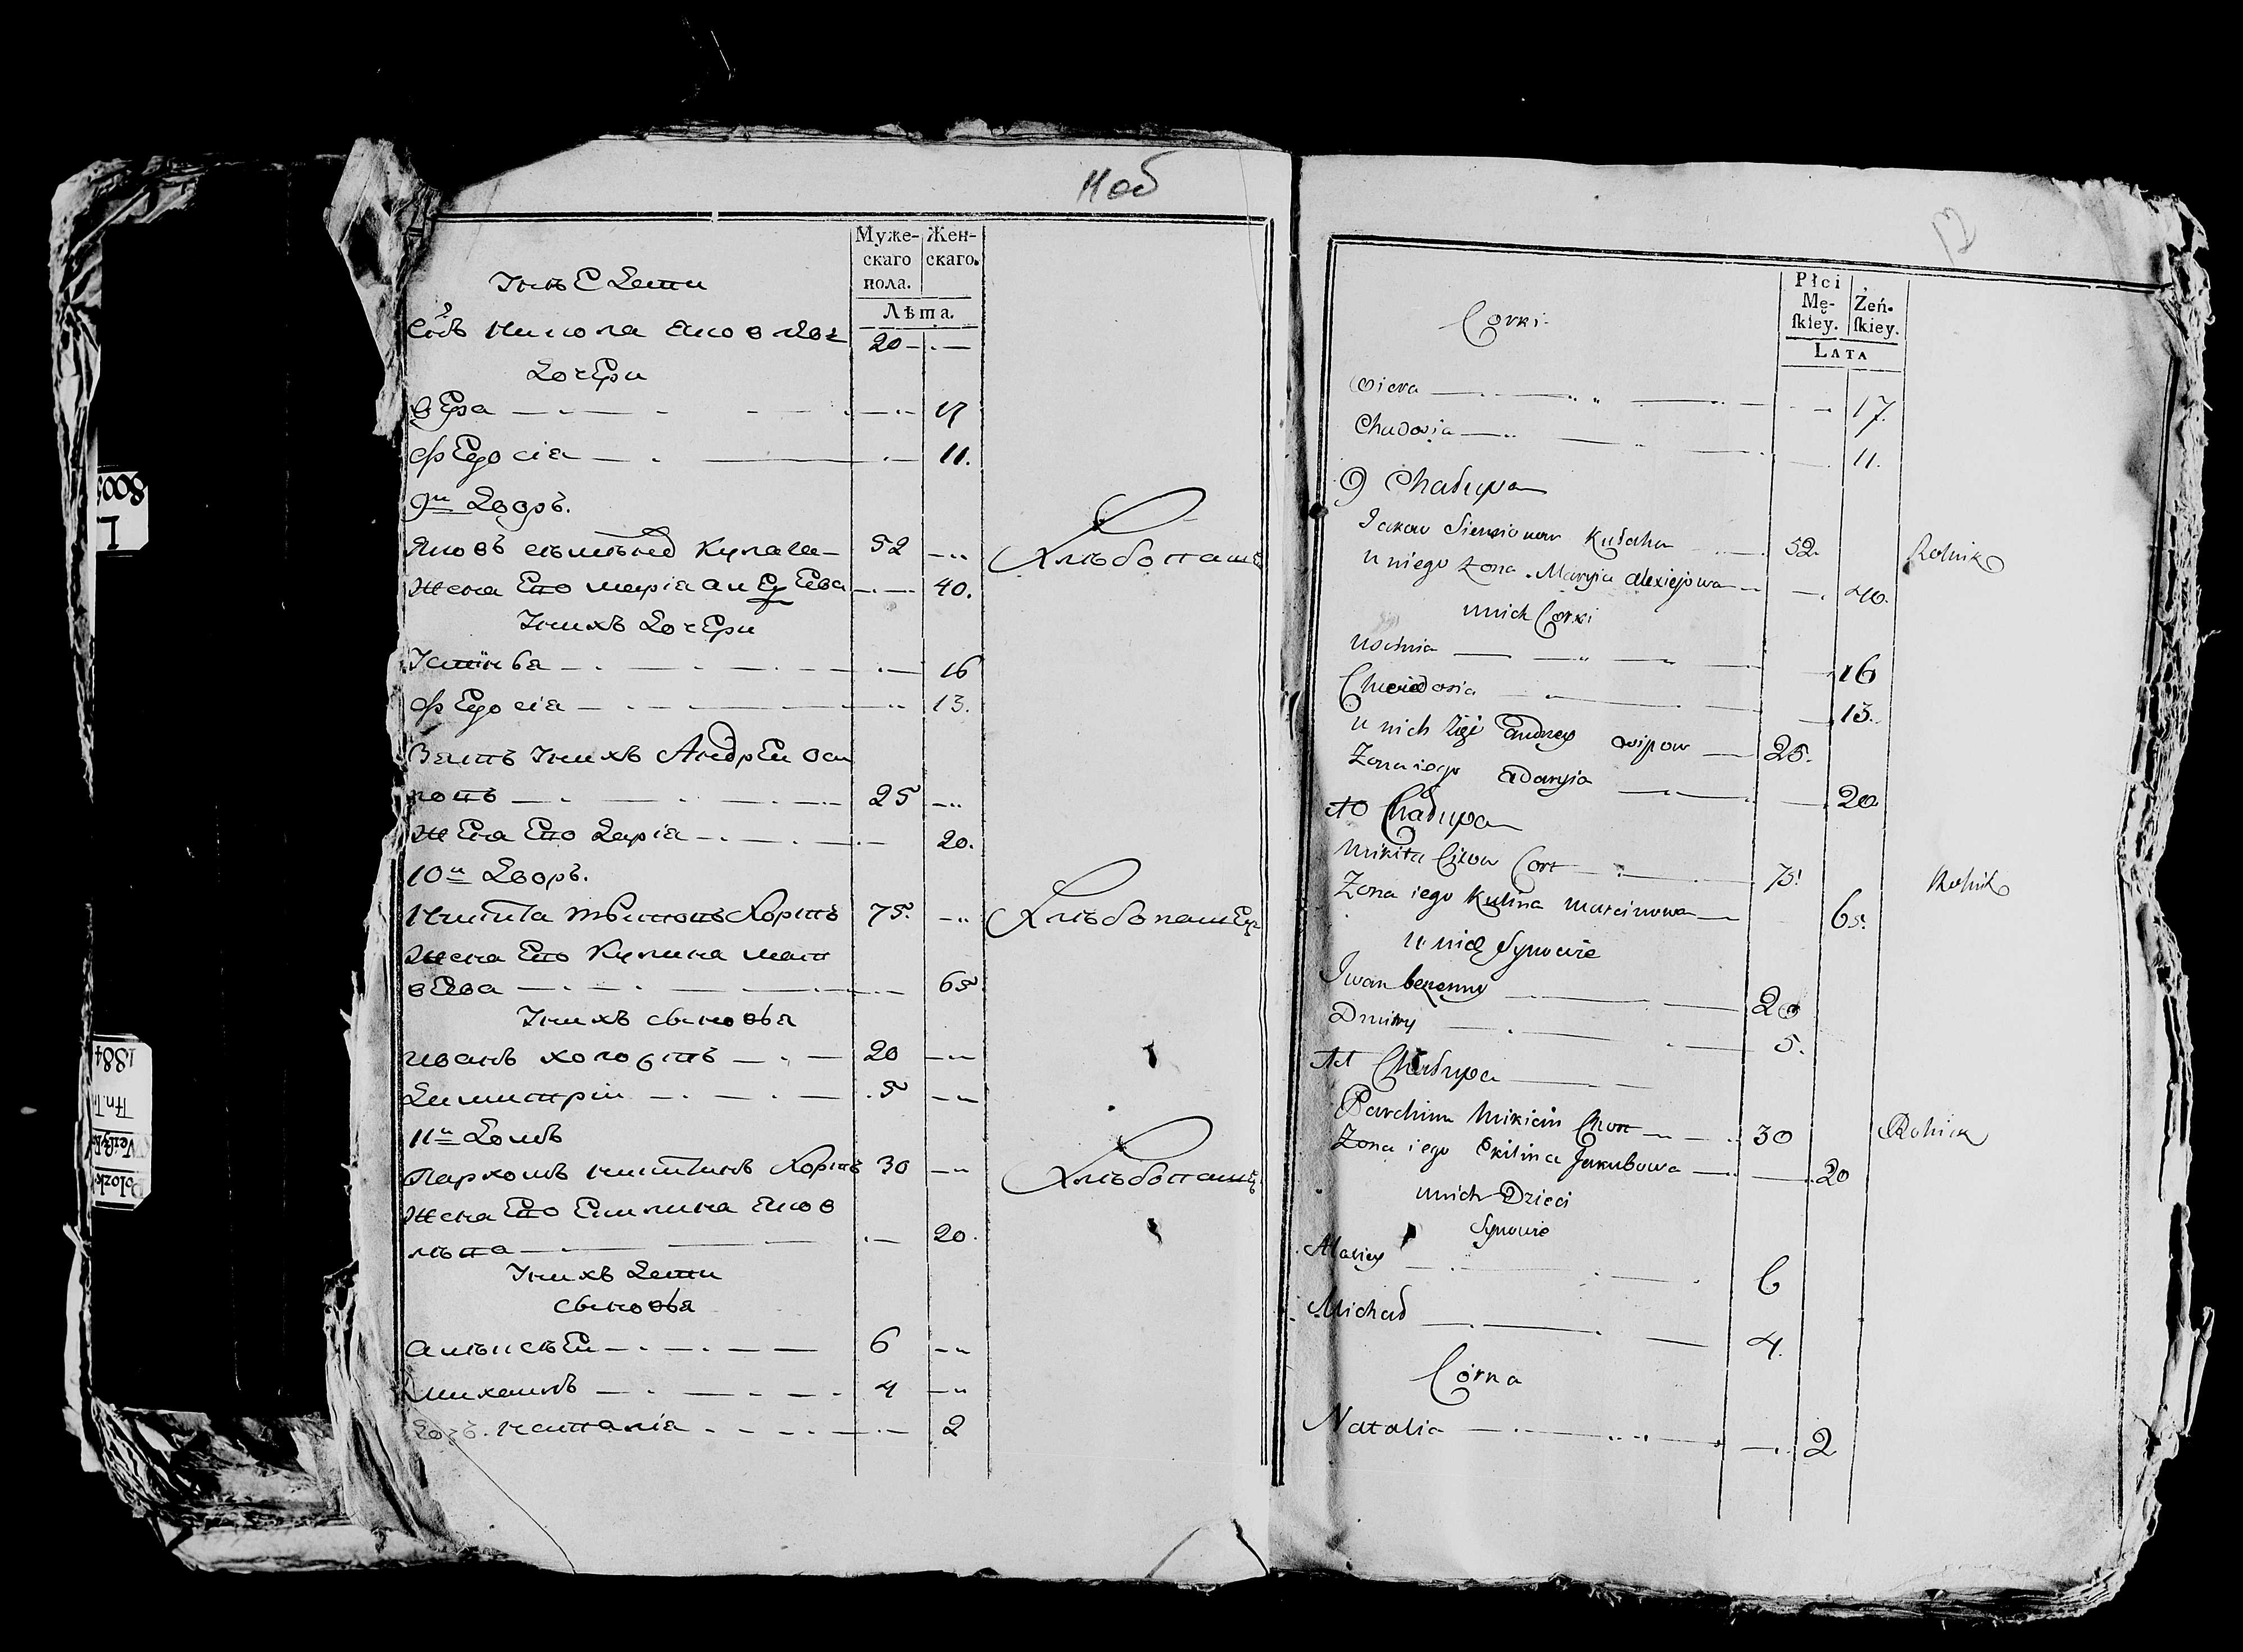 11 об
Муже-
скаго
пола.
Жен-
скаго.
Лѣта.
Дети
20
Дочери
вера 17
федосія 11.
9й Дворъ.
Яковъ 52 Хлѣбопашец
Жена Его марія 40.
Унихъ Дочери
Устінья 16
федосія 13.
Зять Унихъ Андрей Оси
повъ 25
Жена Его Дарія 20.
10й Дворъ.
Никита Хортъ 75. Хлѣбопашец
Жена Его Кулина мат
веева 65
Унихъ сыновья
иванъ холостъ 20
Димитрій 5
11й Домъ
Пархомъ никитинъ Хортъ 30 Хлѣбопашец
Жена Его Екилина яков
лева 20.
Унихъ Дети
сыновья
алексей 6
михаилъ 4
Доч. наталія 2
12
Płci
Mę-
ſkiey.
Żeń-
ſkiey.
Lata
Corki
Wiera 17.
Chadosia 11.
9 Chałupa
Jakow Siemionow Kułaha 52. Rolnik
u niego Zona Maryia Alexiejowa 40.
u nich Corki
Ustinia 16
Chwiedosia 13.
u nich Andrey Osipow 25.
Zona iego Adaryia 20
10 Chałupa
Mikita Cort 75. Rolnik
Zona iego Kulina Marcinowa 65.
u nich Synowie
Iwan bezenny 20
Dmitry 5.
11 Chałupa
Parchim Mikicin Chort 30 Rolnik
Zona iego Ekilina Jakubowa 20
u nich Dzieci
Synowie
Alaxiey 6
Michał 4.
Córka
Natalia 2